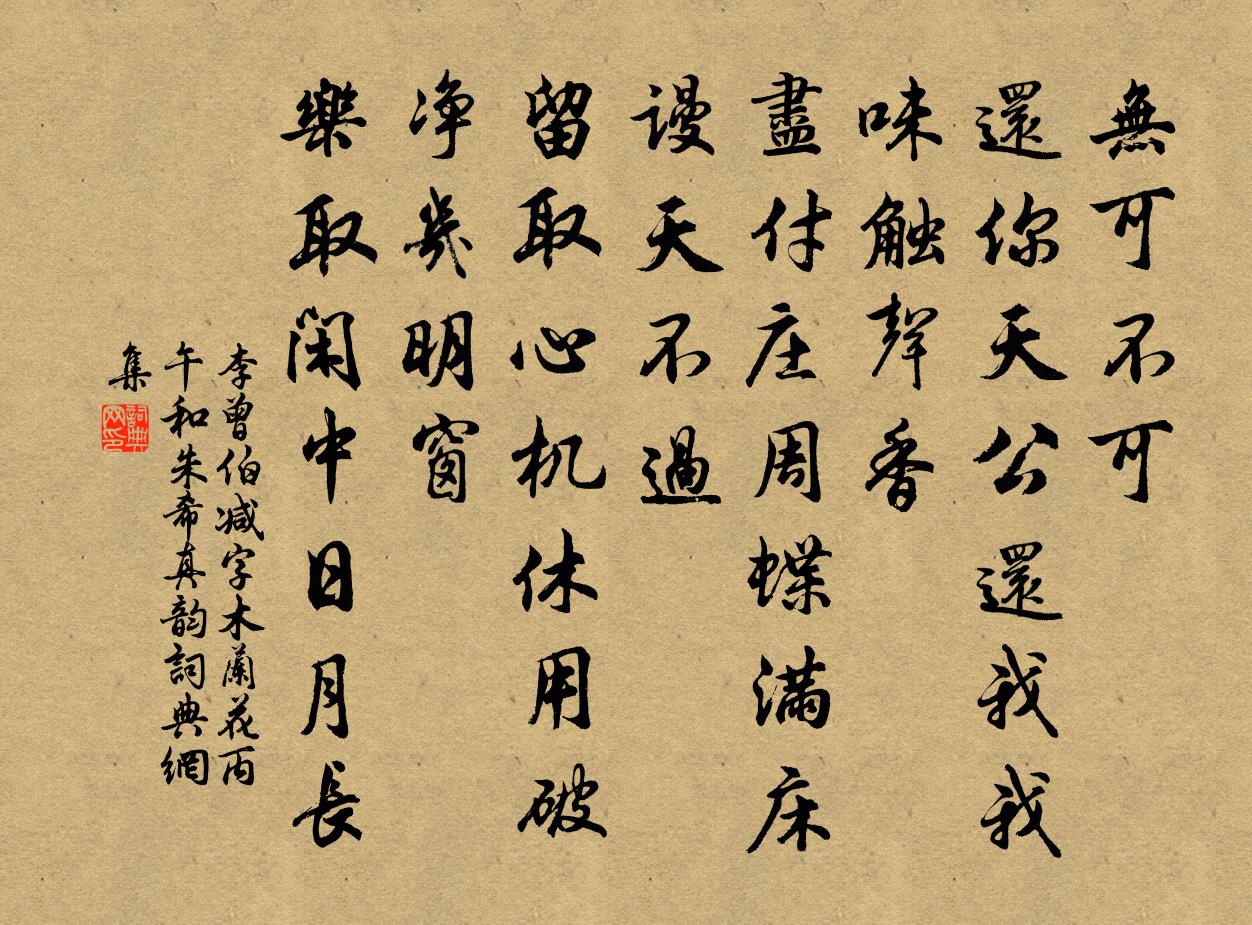 無可不可
還你天公還我我
味触聲香
盡付庄周蝶滿床
谩天不過
留取心机休用破
净几明窗
樂取閑中日月長
李曾伯减字木蘭花丙
午和朱希真韵詞典網
集
詞典網印